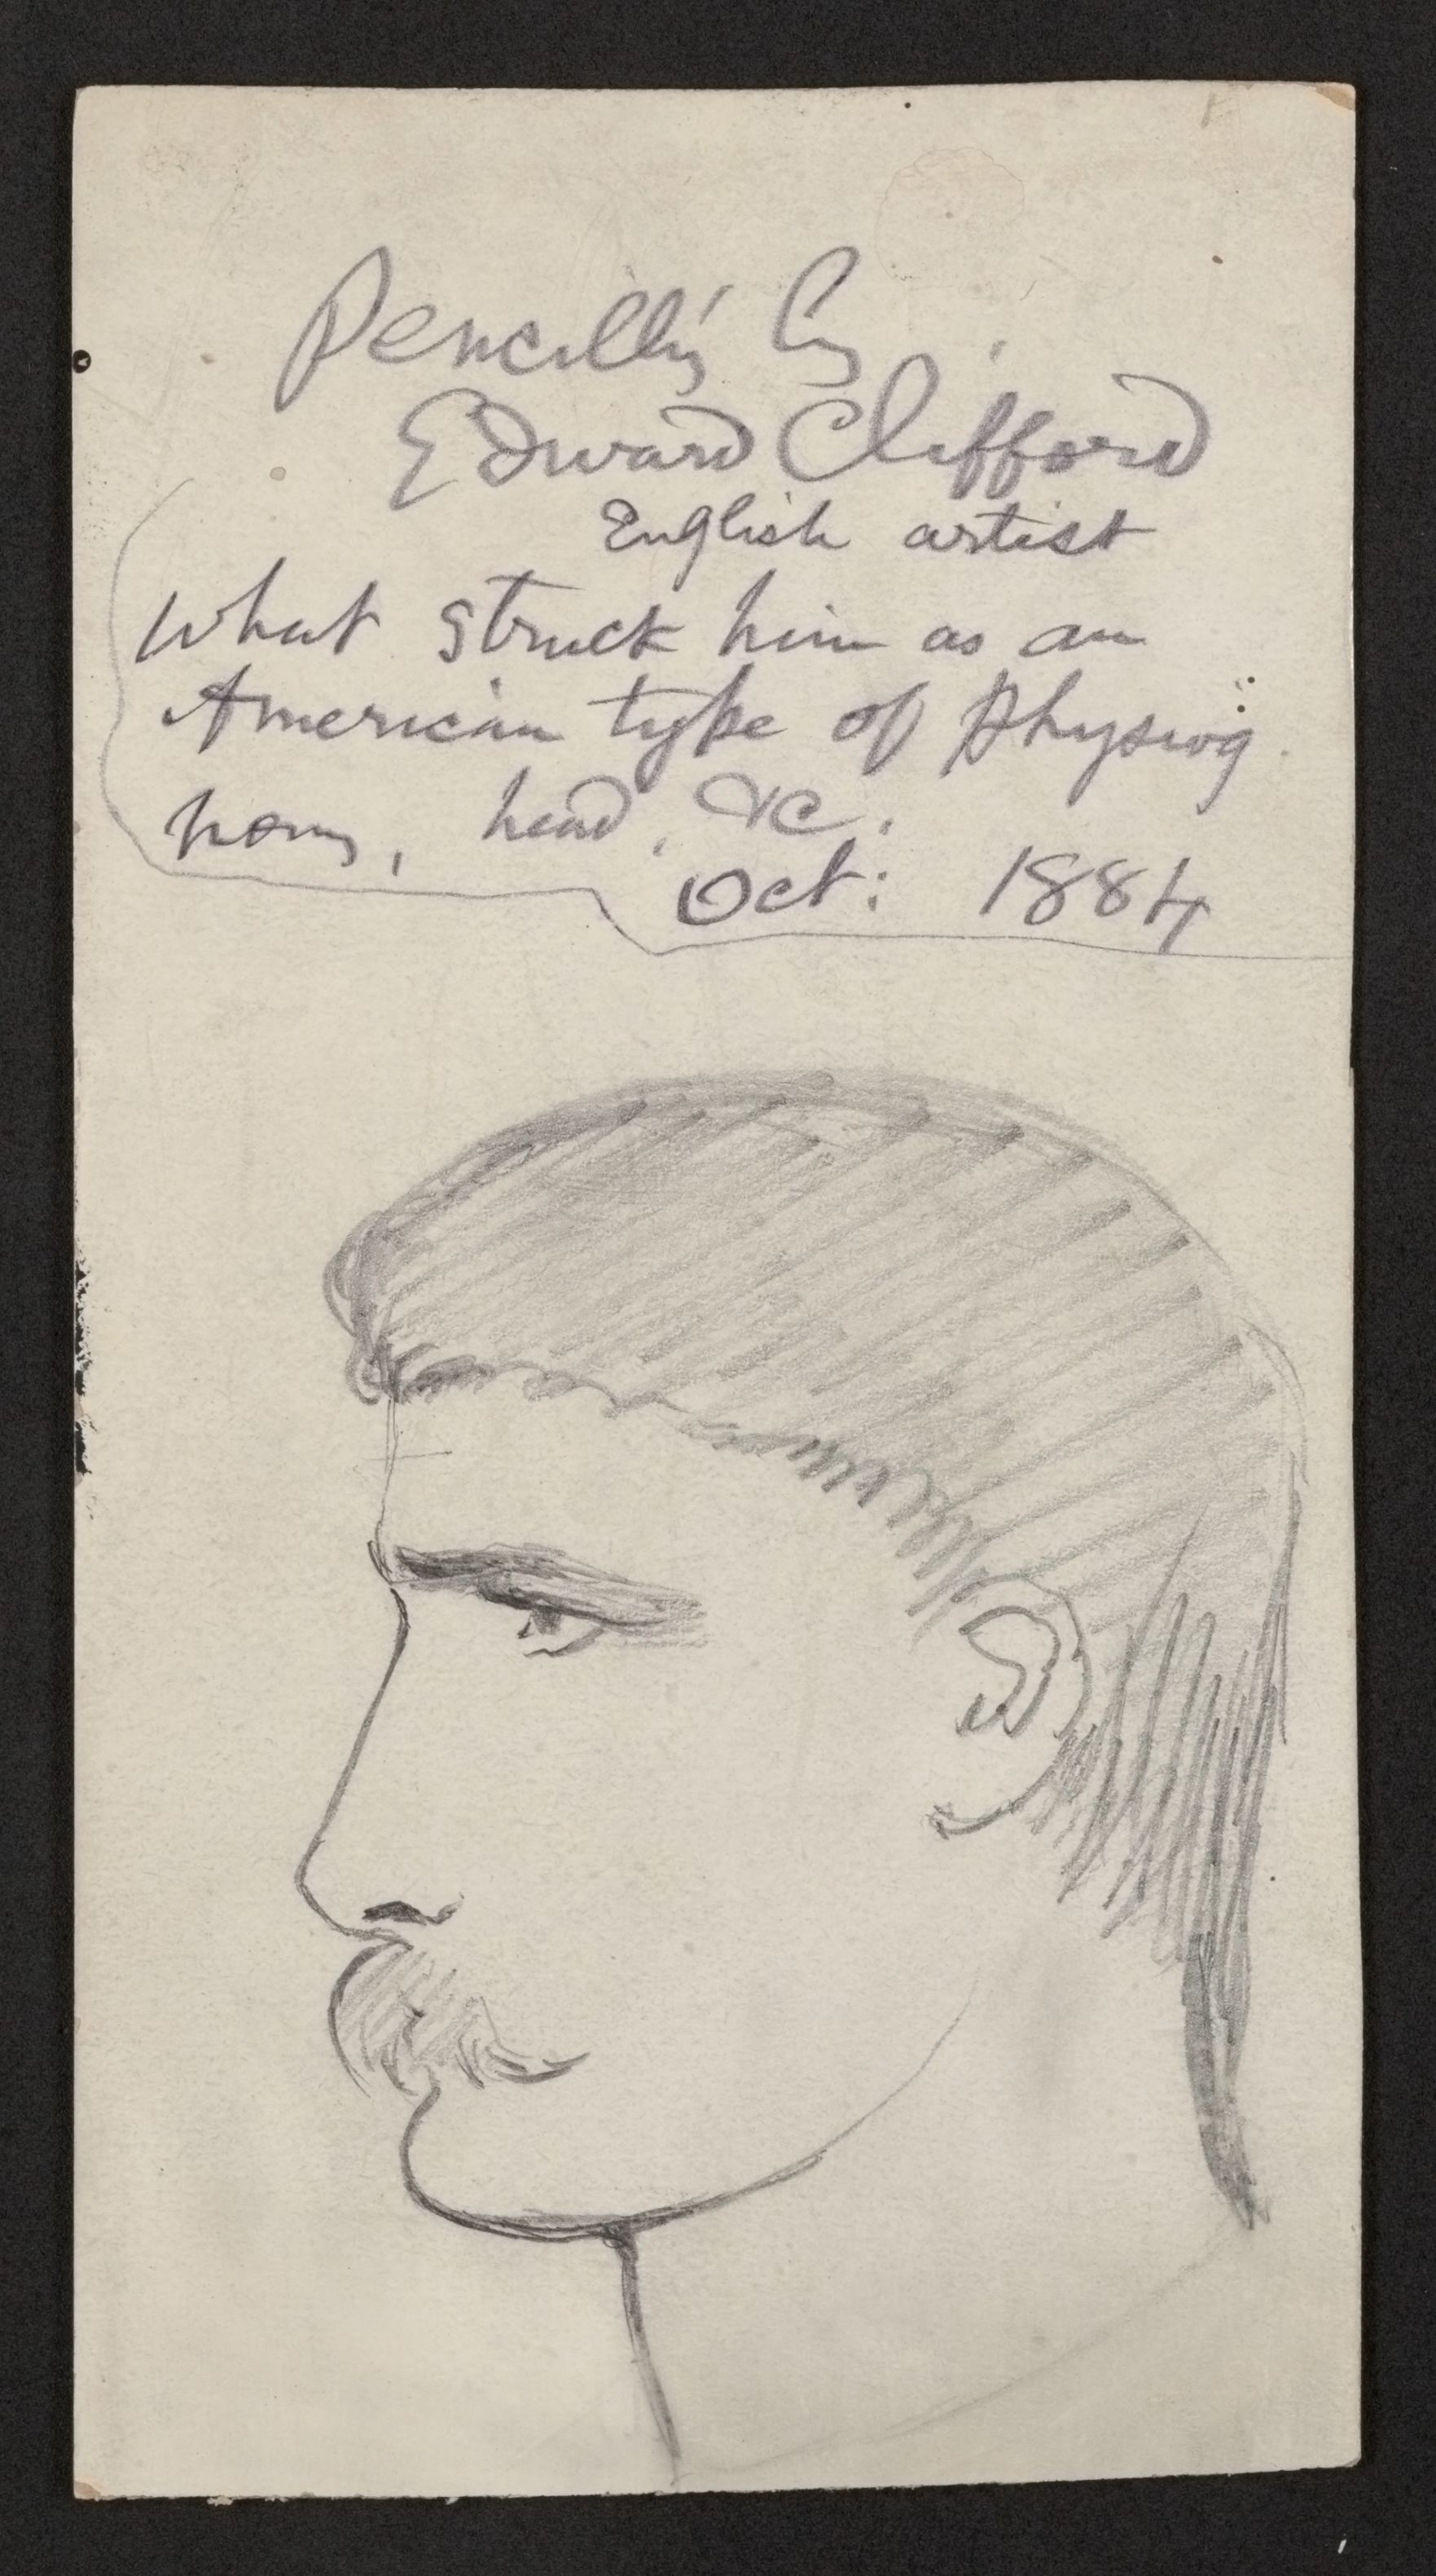 Pencill'g by
Edward Clifford
English artist
What struck him as an
American type of Physiog
nomy, head, &c.
Oct: 1884